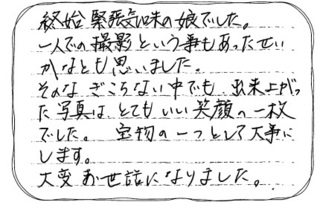 終始緊張気味の娘でした。
一人での撮影という事もあったせい
かなとも思いました。
そのなぎこちない中でも、出来上がっ
た写真は、とてもいい笑顔の一枚
でした。 宝物の一つとして大事に
します。
大変お世話になりました。